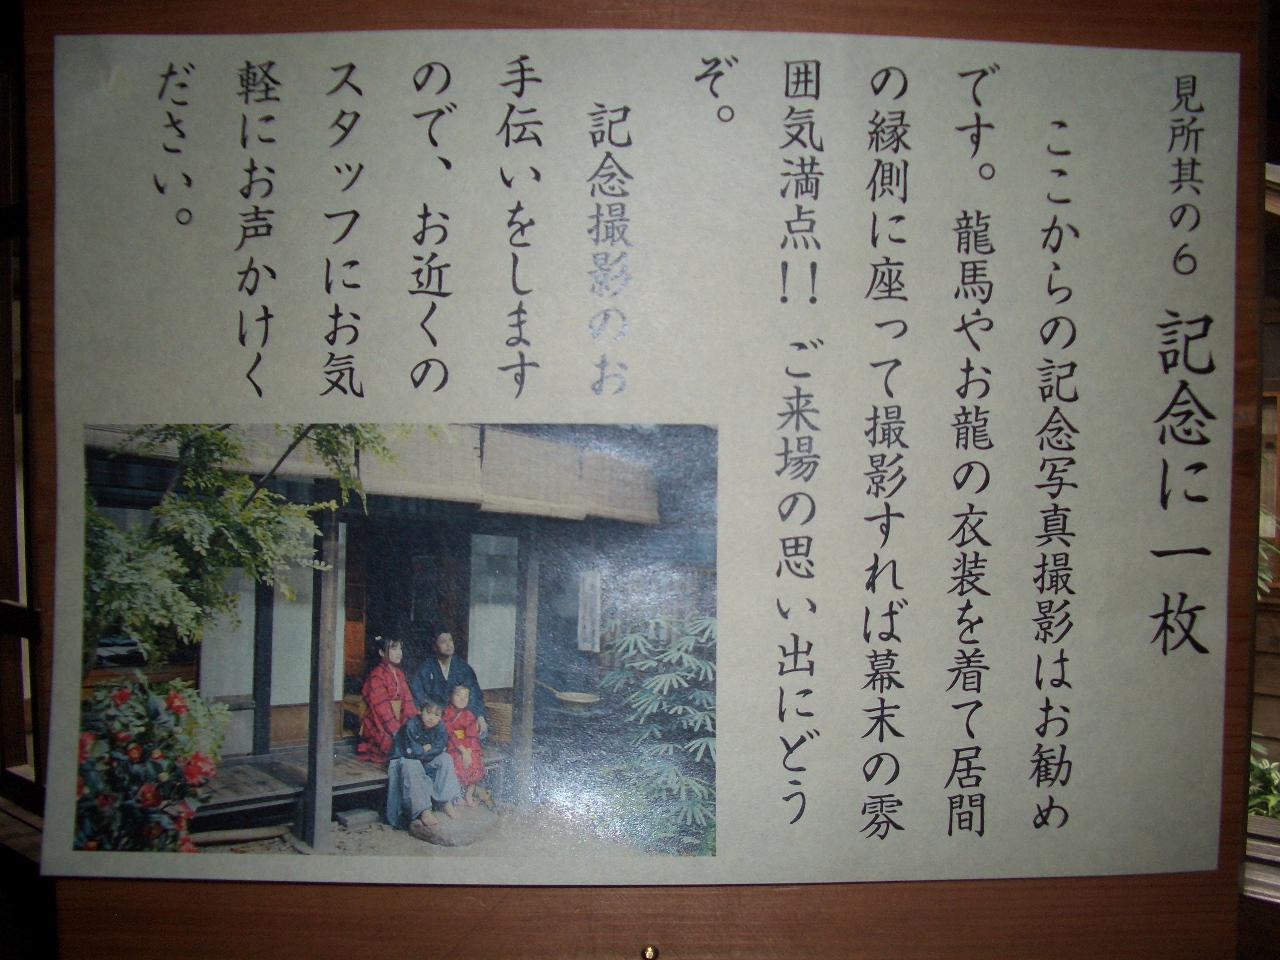 見所其の6 記念に一枚
ここからの記念写真撮影はお勧め
です。龍馬やお龍の衣装を着て居間
の縁側に座って撮影すれば幕末の雰
囲気満点!! ご来場の思い出にどう
ぞ。
記念撮影のお
手伝いをします
ので、お近くの
スタッフにお気
軽にお声かけく
ださい。